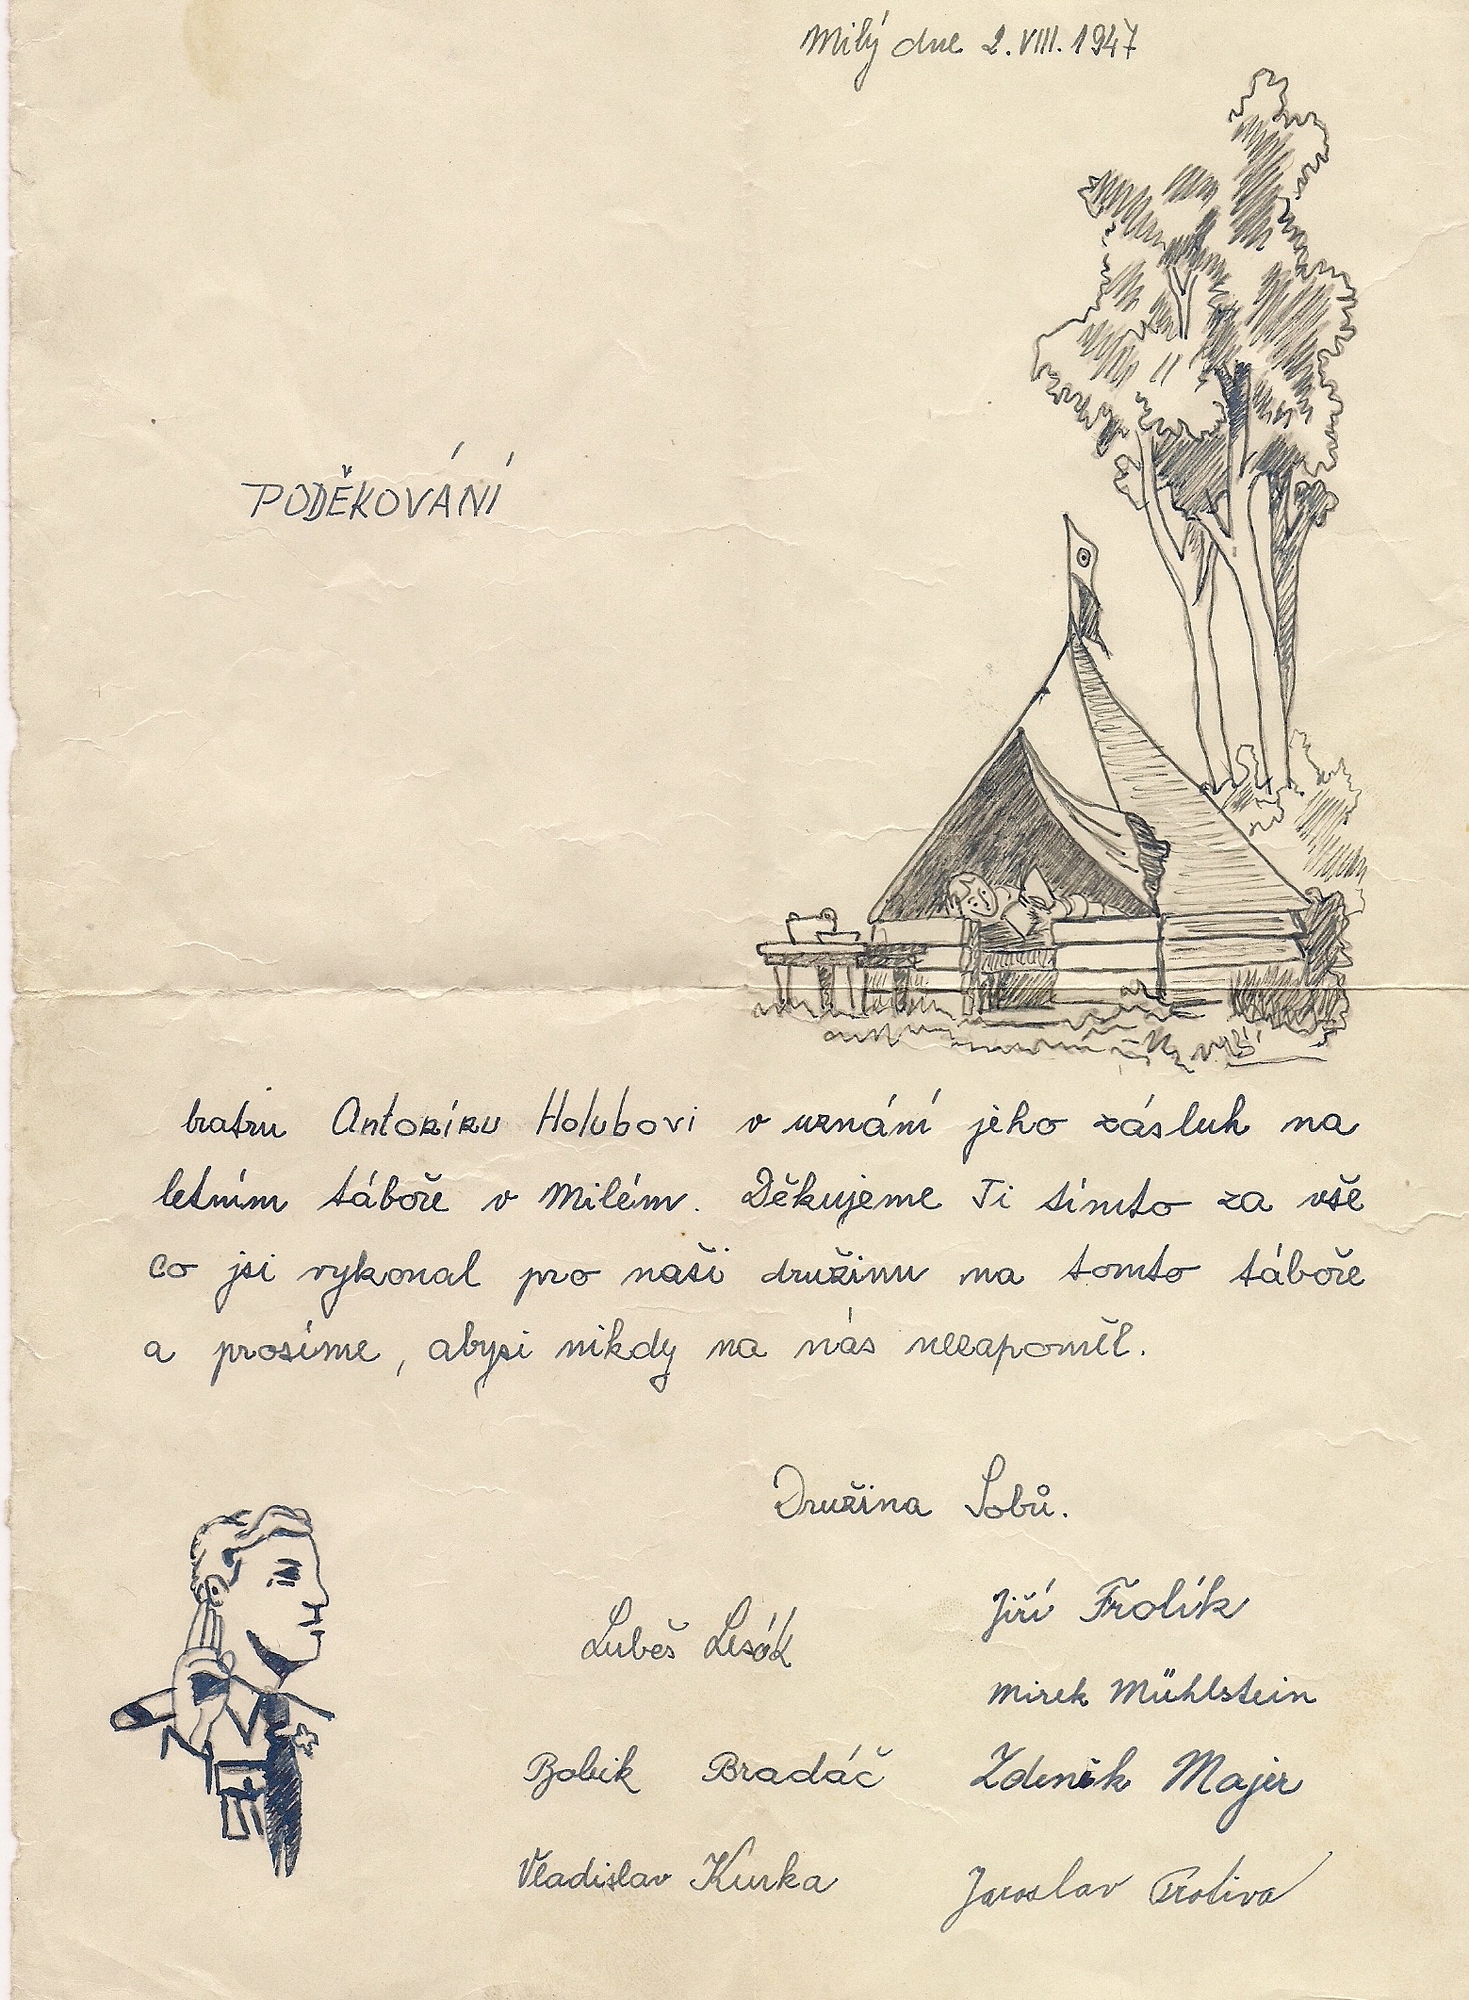 Milý dne 2. VIII. 1947
PODĚKOVÁNÍ
bratru Antonínu Holubovi v uznání jeho zásluh na
letním táboře v Milém. Děkujeme Ti tímto za vše
co jsi vykonal pro naši družinu na tomto táboře
a prosíme, abysi nikdy na nás nezapoměl.
Družina Sobů.
Jiří Frolík
Lubeš Lesák
Mirek Mühlstein
Bobik Bradáč
Zdeněk Majer
Vladislav Kurka
Jaroslav